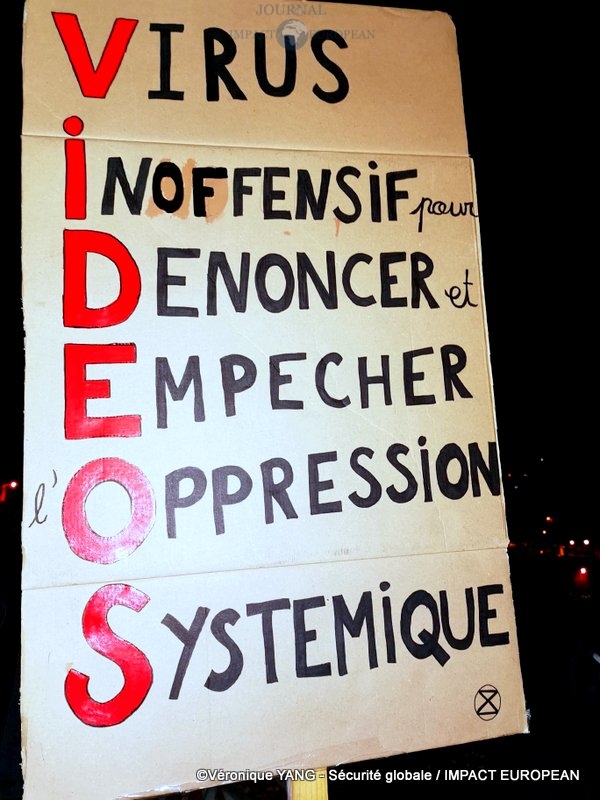 JOURNAL
IMPACT EUROPEAN
ViRUS
INOFFENSiF pour
DENONCER et
EMPECHER
l'OPPRESSiON
SYSTEMiQUE
©Véronique YANG - Sécurité globale / IMPACT EUROPEAN